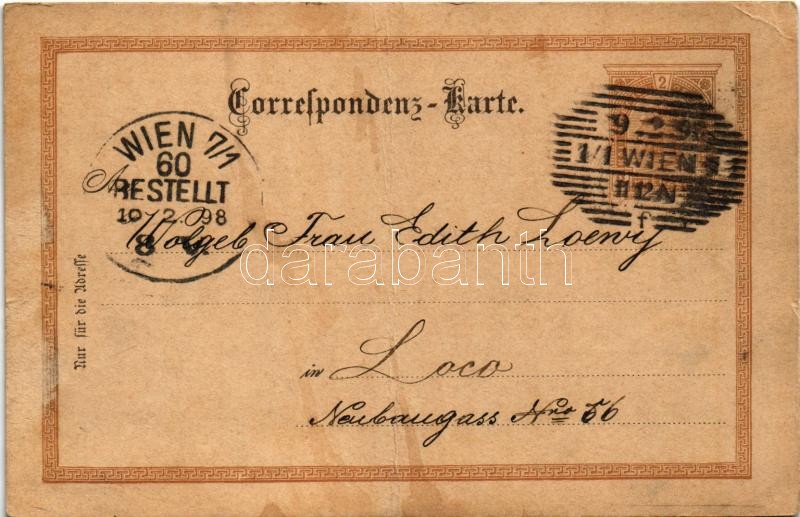 2
Correspondenz-Karte.
9 2 9
1/1 WIEN 1
11 12 N
f
WIEN 7/1
60
BESTELLT
10 2 98
8
An
Wolgeb Frau Edith Loewy
darabanth
Nur für die Adresse
in Loco
Neubaugass Nro 56